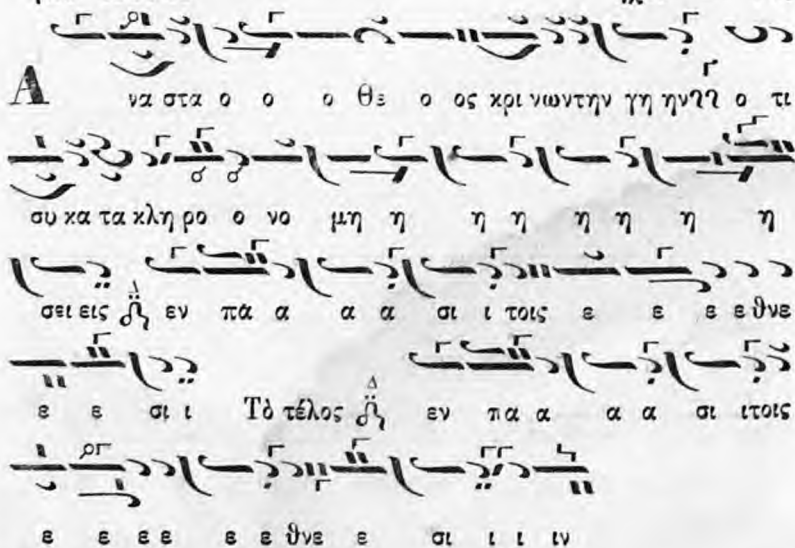 Α να στα ο ο ο Θε ο ος κρι νωντην γη ην ο τι
συ κα τα κλη ρο ο νο μη η η η η η η η
σει εις εν πα α α α σι ι τοις ε ε ε ε θνε
ε ε σι ι Τὸ τέλος εν πα α α α σι ιτοις
ε ε ε ε ε ε θνε ε σι ι ι ιν